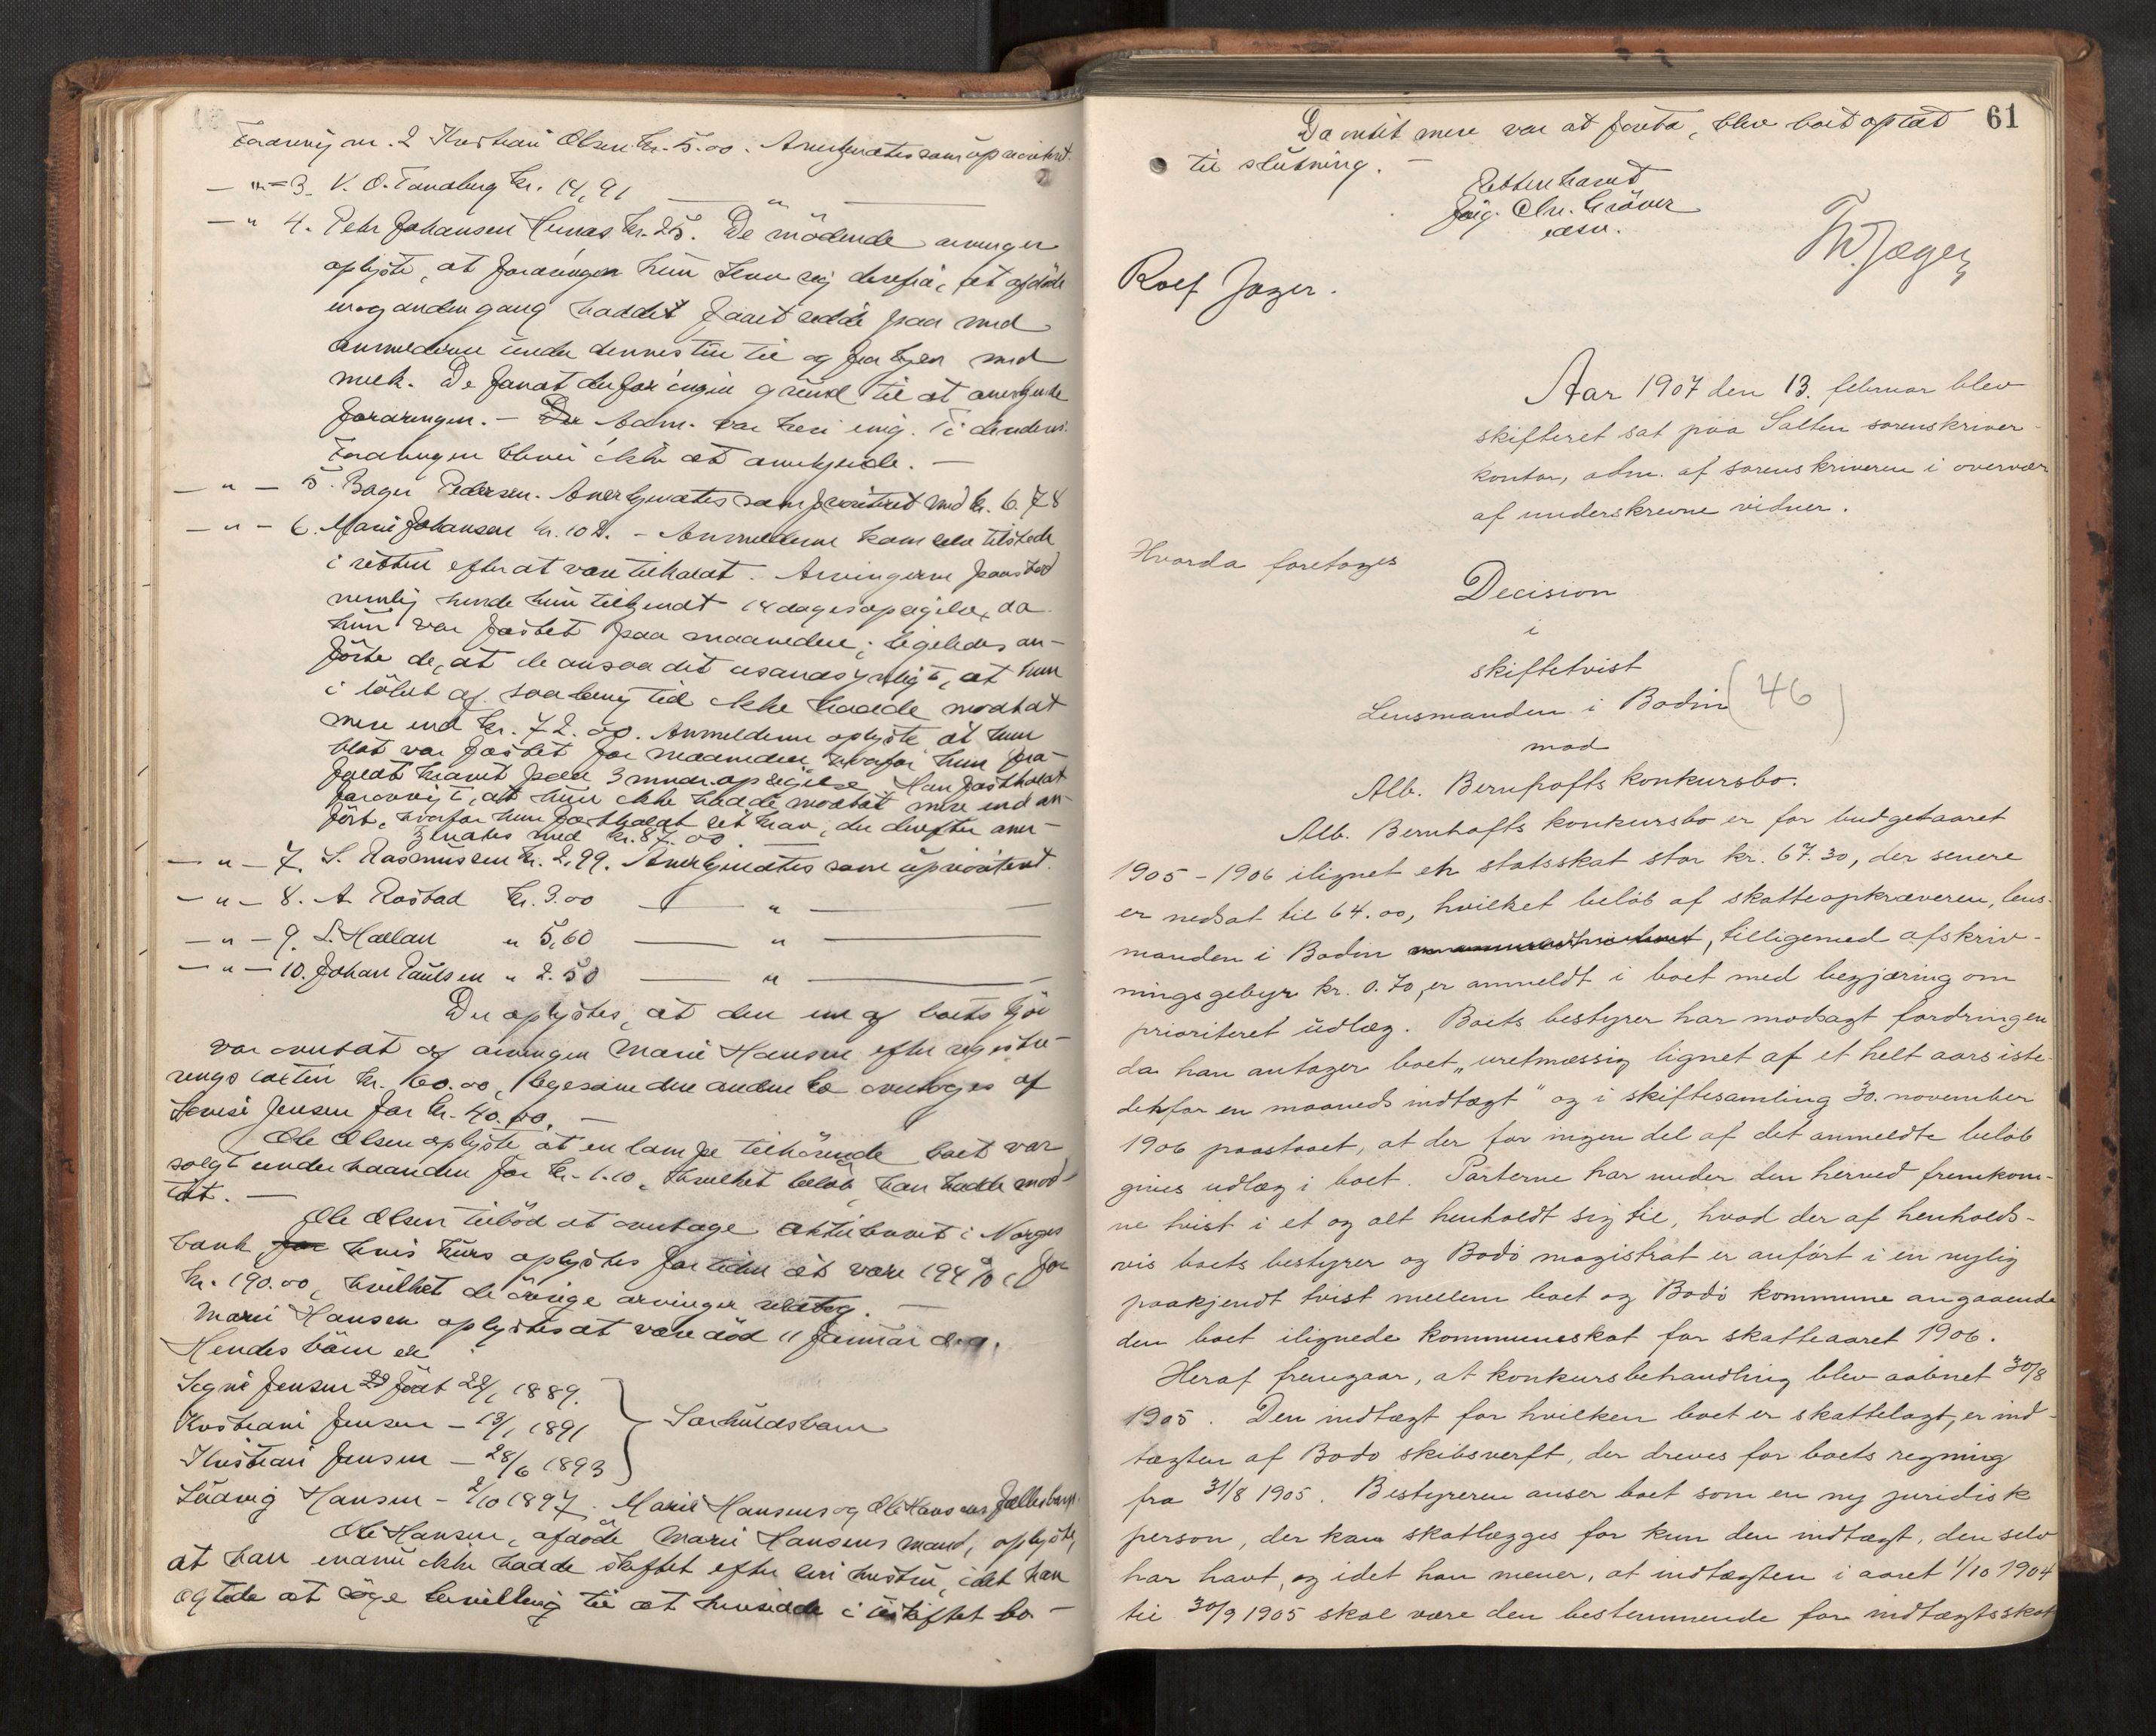 Fordring nr. 2 Kristian Olsen kr. 5.00. Anerkjendtes som uprioritert.
— " — 3. V. O. Tandberg kr. 14,91 — " —
— " 4. Peder Johansen Hunas kr. 25. De mödende arvinger
oplyste, at fordringen kun skrev sig derfra, at afdöde
en og anden gang haddet faaet sidde paa med
anmelderen under dennes tur til og fra byen med
melk. De fandt derfor ingen grund til at anerkjende
fordringen. — Der Adm. var heri enig. Ti
Fordringen blev ikke at anerkjende. —
— " — 5. Bager Pedersen. Anerkjendtes som prioritert med kr. 6.78
— " — 6. Marie Johansen kr. 102. — Anmelderen kom selv tilstede
i retten efter at være tilkaldt. Arvingerne paastod
nemlig hende kun tilkjendt 14 dages opsigelse, da
hun var fæstet paa maaneden; ligeledes an-
förte de, at de ansaa det usandsynligt, at hun
i löbet af saa lang tid ikke hadde modtat
mere end kr. 72.00. Anmelderen oplyste at hun
blot var fæstet for maaneden hvorfor hun fra-
faldt kravet paa 3 mndr. opsigelse. Hun fasthaldt
forövrigt, at hun ikke hadde modtat mere end an-
fört, hvorfor hun fastholdt sit krav, der derefter aner-
kjendtes med kr. 87.00
— " — 7. S. Rasmussen kr. 2,99. Anerkjendtes som uprioritert.
— " — 8. A Rostad kr. 3.00 — " —
— " — 9. L. Hallan " 5,60 — " —
— " — 10. Johan Paulsen " 2.50 — " —
Der oplystes, at den ene af boets kjör
var overtat af arvingen Marie Hansen efter registre-
rings taxten kr. 60.00, ligesom den anden ko overtoges af
Signe Jensen for kr. 40.00. —
Ole Olsen oplyste at en lampe tilhörende boet var
solgt underhaanden for kr. 1.10, hvilket belöb han hadde mod-
tat. —
Ole Olsen tilböd at overtage aktiebrevet i Norges
bank for hvis kurs oplystes for tiden at være 194 %, for
kr. 190.00, hvilket de övrige arvinger vedtog. —
Marie Hansen oplystes at være död 11 januar d. a.
Hendes börn er
Signe Jensen födt 22/1 1889.
Kristiane Jensen — 13/1 1891
Kristian Jensen — 28/6 1893
Særkuldsbarn
Ludvig Hansen — 2/10 1897. Marie Hansens og Ole Hansens fællesbarn.
Ole Hansen, afdöde Marie Hansens mand, oplyste,
at han endnu ikke hadde skiftet efter sin hustru, idet han
agtede at söge bevilling til at hensidde i uskiftet bo —
61
Da intet mere var at foreta, blev boet optat
til slutning. —
Retten hævet
Jörg. Chr. Gröver
cesv.
Th. Jæger
Rolf Jæger.
Aar 1907 den 13. februar blev
skifteret sat paa Salten sorenskriver-
kontor, adm. af sorenskriveren i overvær
af underskrevne vidner.
Hvorda foretoges
Decision
i
skiftetvist
Lensmanden i Bodin (46)
mod
Alb. Bernhofts konkursbo.
Alb. Bernhofts konkursbo er for budgetaaret
1905 – 1906 ilignet en statsskat stor kr. 67.30, der senere
er nedsat til 64.00, hvilket belöb af skatteopkræveren, lens-
manden i Bodin , tilligemed afskriv-
ningsgebyr kr. 0.70, er anmeldt i boet med begjæring om
prioriteret udlæg. Boets bestyrer har modsagt fordringen
da han antager boet „uretmæssig lignet af et helt aar iste-
detfor en maaneds indtægt" og i skiftesamling 30. november
1906 paastaaet, at der for ingen del af det anmeldte belöb
gives udlæg i boet. Parterne har under den herved fremkom-
ne tvist i et og alt henholdt sig til, hvad der af henholds-
vis boets bestyrer og Bodö magistrat er anfört i en nylig
paakjendt tvist mellem boet og Bodö kommune angaaende
den boet ilignede kommuneskat for skatteaaret 1906.
Heraf fremgaar, at konkursbehandling blev aabnet 30/8
1905. Den indtægt for hvilken boet er skattelagt, er ind-
tægten af Bodö skibsverft, der dreves for boets regning
fra 31/8 1905. Bestyreren anser boet som en ny juridisk
person, der kan skatlægges for kun den indtægt, den selv
har havt, og idet han mener, at indtægten i aaret 1/10 1904
til 30/9 1905 skal være den bestemmende for indtægtsskat